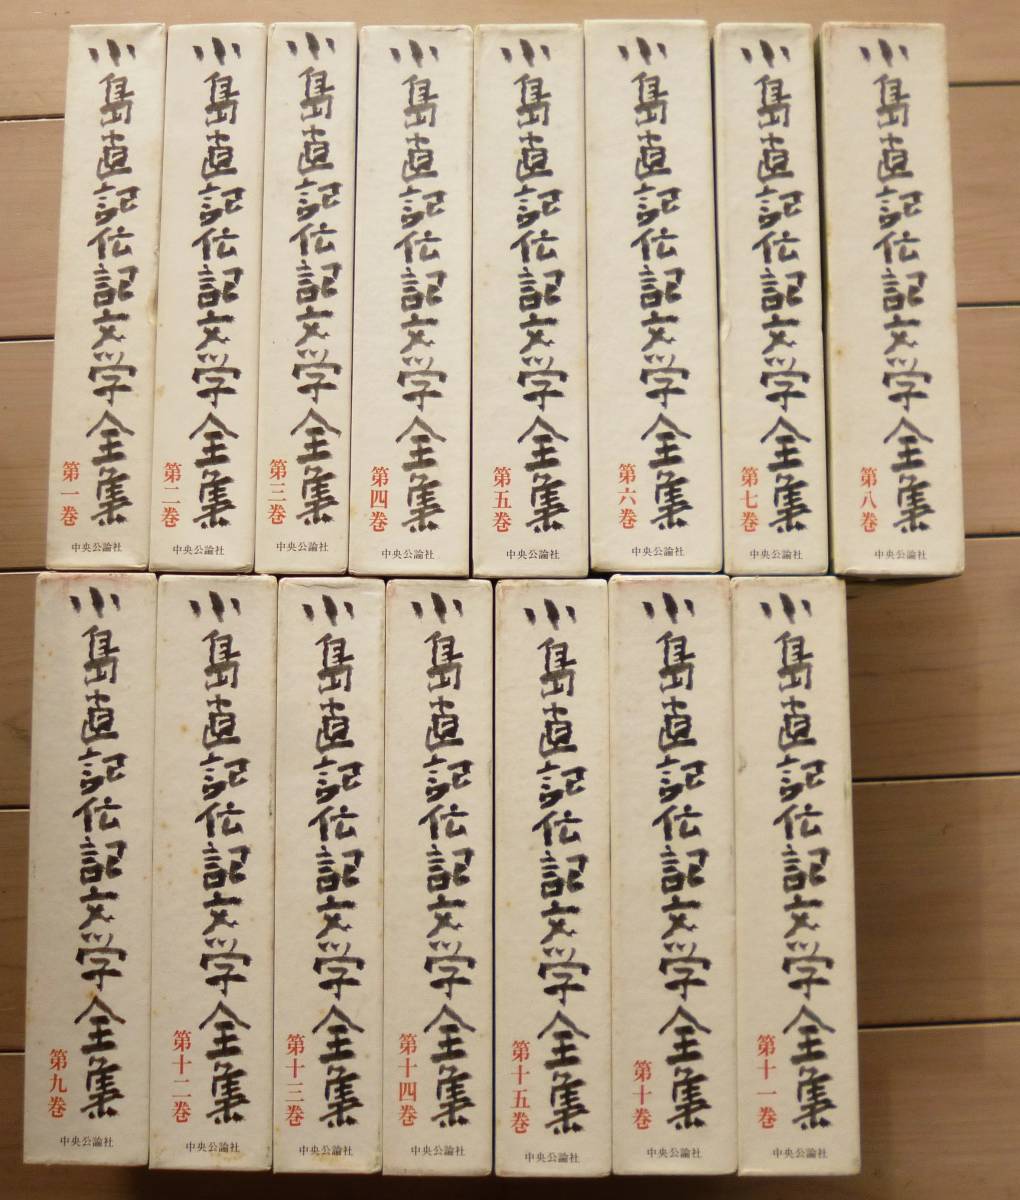 小島直記伝記文学全集
第一巻
中央公論社
小島直記伝記文学全集
第二巻
中央公論社
小島直記伝記文学全集
第三巻
中央公論社
小島直記伝記文学全集
第四巻
中央公論社
小島直記伝記文学全集
第五巻
中央公論社
小島直記伝記文学全集
第六巻
中央公論社
小島直記伝記文学全集
第七巻
中央公論社
小島直記伝記文学全集
第八巻
中央公論社
小島直記伝記文学全集
第九巻
中央公論社
小島直記伝記文学全集
第十二巻
中央公論社
小島直記伝記文学全集
第十三巻
中央公論社
小島直記伝記文学全集
第十四巻
中央公論社
小島直記伝記文学全集
第十五巻
中央公論社
小島直記伝記文学全集
第十巻
中央公論社
小島直記伝記文学全集
第十一巻
中央公論社